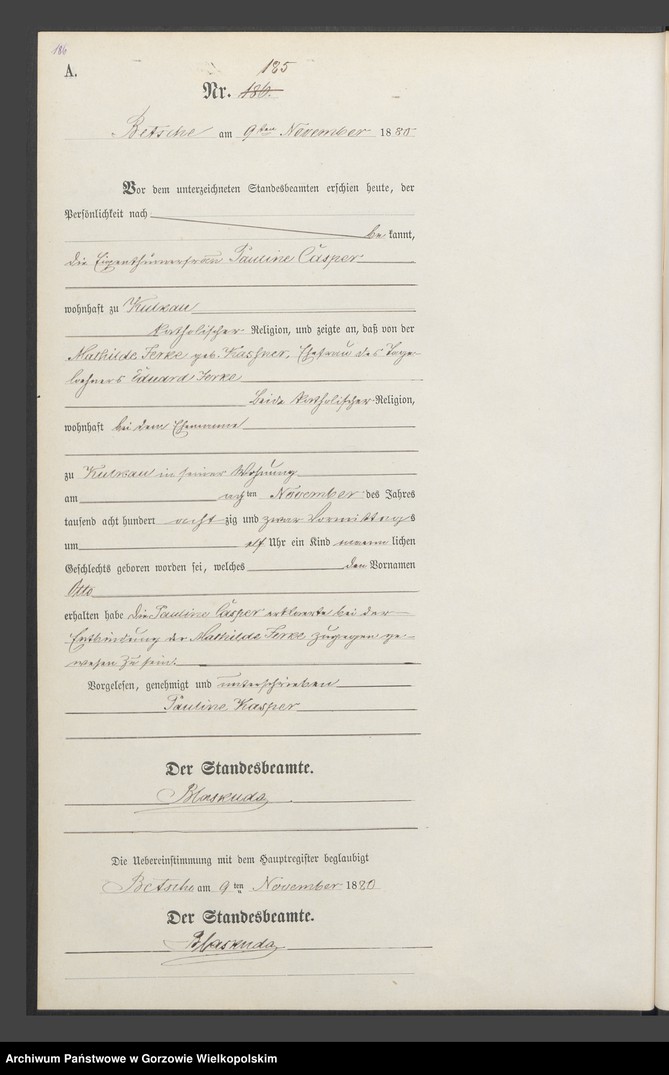 186
A.
185
Nr. 186.
Betsche am 9ten November 1880
Vor dem unterzeichneten Standesbeamten erschien heute, der
Persönlichkeit nach
be kannt,
die Eigenthümerfrau Pauline Casper
wohnhaft zu Kulkau
katholischer Religion, und zeigte an, daß von der
Mathilde Jerke geb. Kaschner, Ehefrau des Tage-
löhners Eduard Jerke
beide katholischer Religion,
wohnhaft bei dem Ehemanne
zu Kulkau in seiner Wohnung
am achten November des Jahres
tausend acht hundert acht zig und zwar Vormittags
um elf Uhr ein Kind maenn lichen
Geschlechts geboren worden sei, welches den Vornamen
Otto
erhalten habe die Pauline Casper erklaerte bei der
Entbindung der Mathilde Jerke zugegen ge-
wesen zu sein.
Vorgelesen, genehmigt und unterschrieben
Pauline Kasper
Der Standesbeamte.
Blaskuda
Die Uebereinstimmung mit dem Hauptregister beglaubigt
Betsche am 9ten November 1880
Der Standesbeamte.
Blaskuda
Archiwum Państwowe w Gorzowie Wielkopolskim